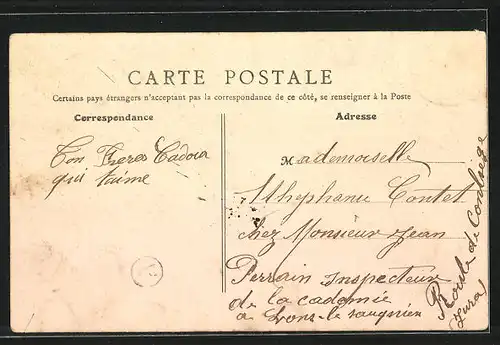 CARTE POSTALE
Certains pays étrangers n'acceptant pas la correspondance de ce côté, se renseigner à la Poste
Correspondance
Adresse
Ton Freres Cadoia
qui t'aime
Mademoiselle
Sthephanie Contet
chez Monsieur Jean
Perrain Inspecteur
de la cademie
a Lons-le saugnien
Route de Conliege
Jura